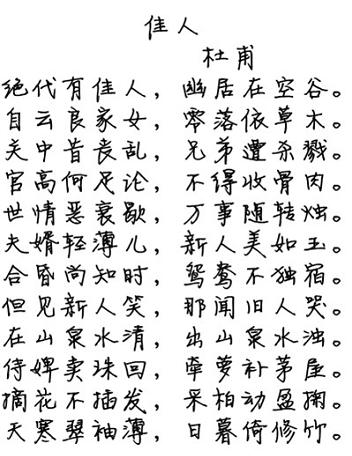 佳人
杜甫
绝代有佳人，幽居在空谷。
自云良家女，零落依草木。
关中昔丧乱，兄弟遭杀戮。
官高何足论，不得收骨肉。
世情恶衰歇，万事随转烛。
夫婿轻薄儿，新人美如玉。
合昏尚知时，鸳鸯不独宿。
但见新人笑，那闻旧人哭。
在山泉水清，出山泉水浊。
侍婢卖珠回，牵萝补茅屋。
摘花不插发，采柏动盈掬。
天寒翠袖薄，日暮倚修竹。